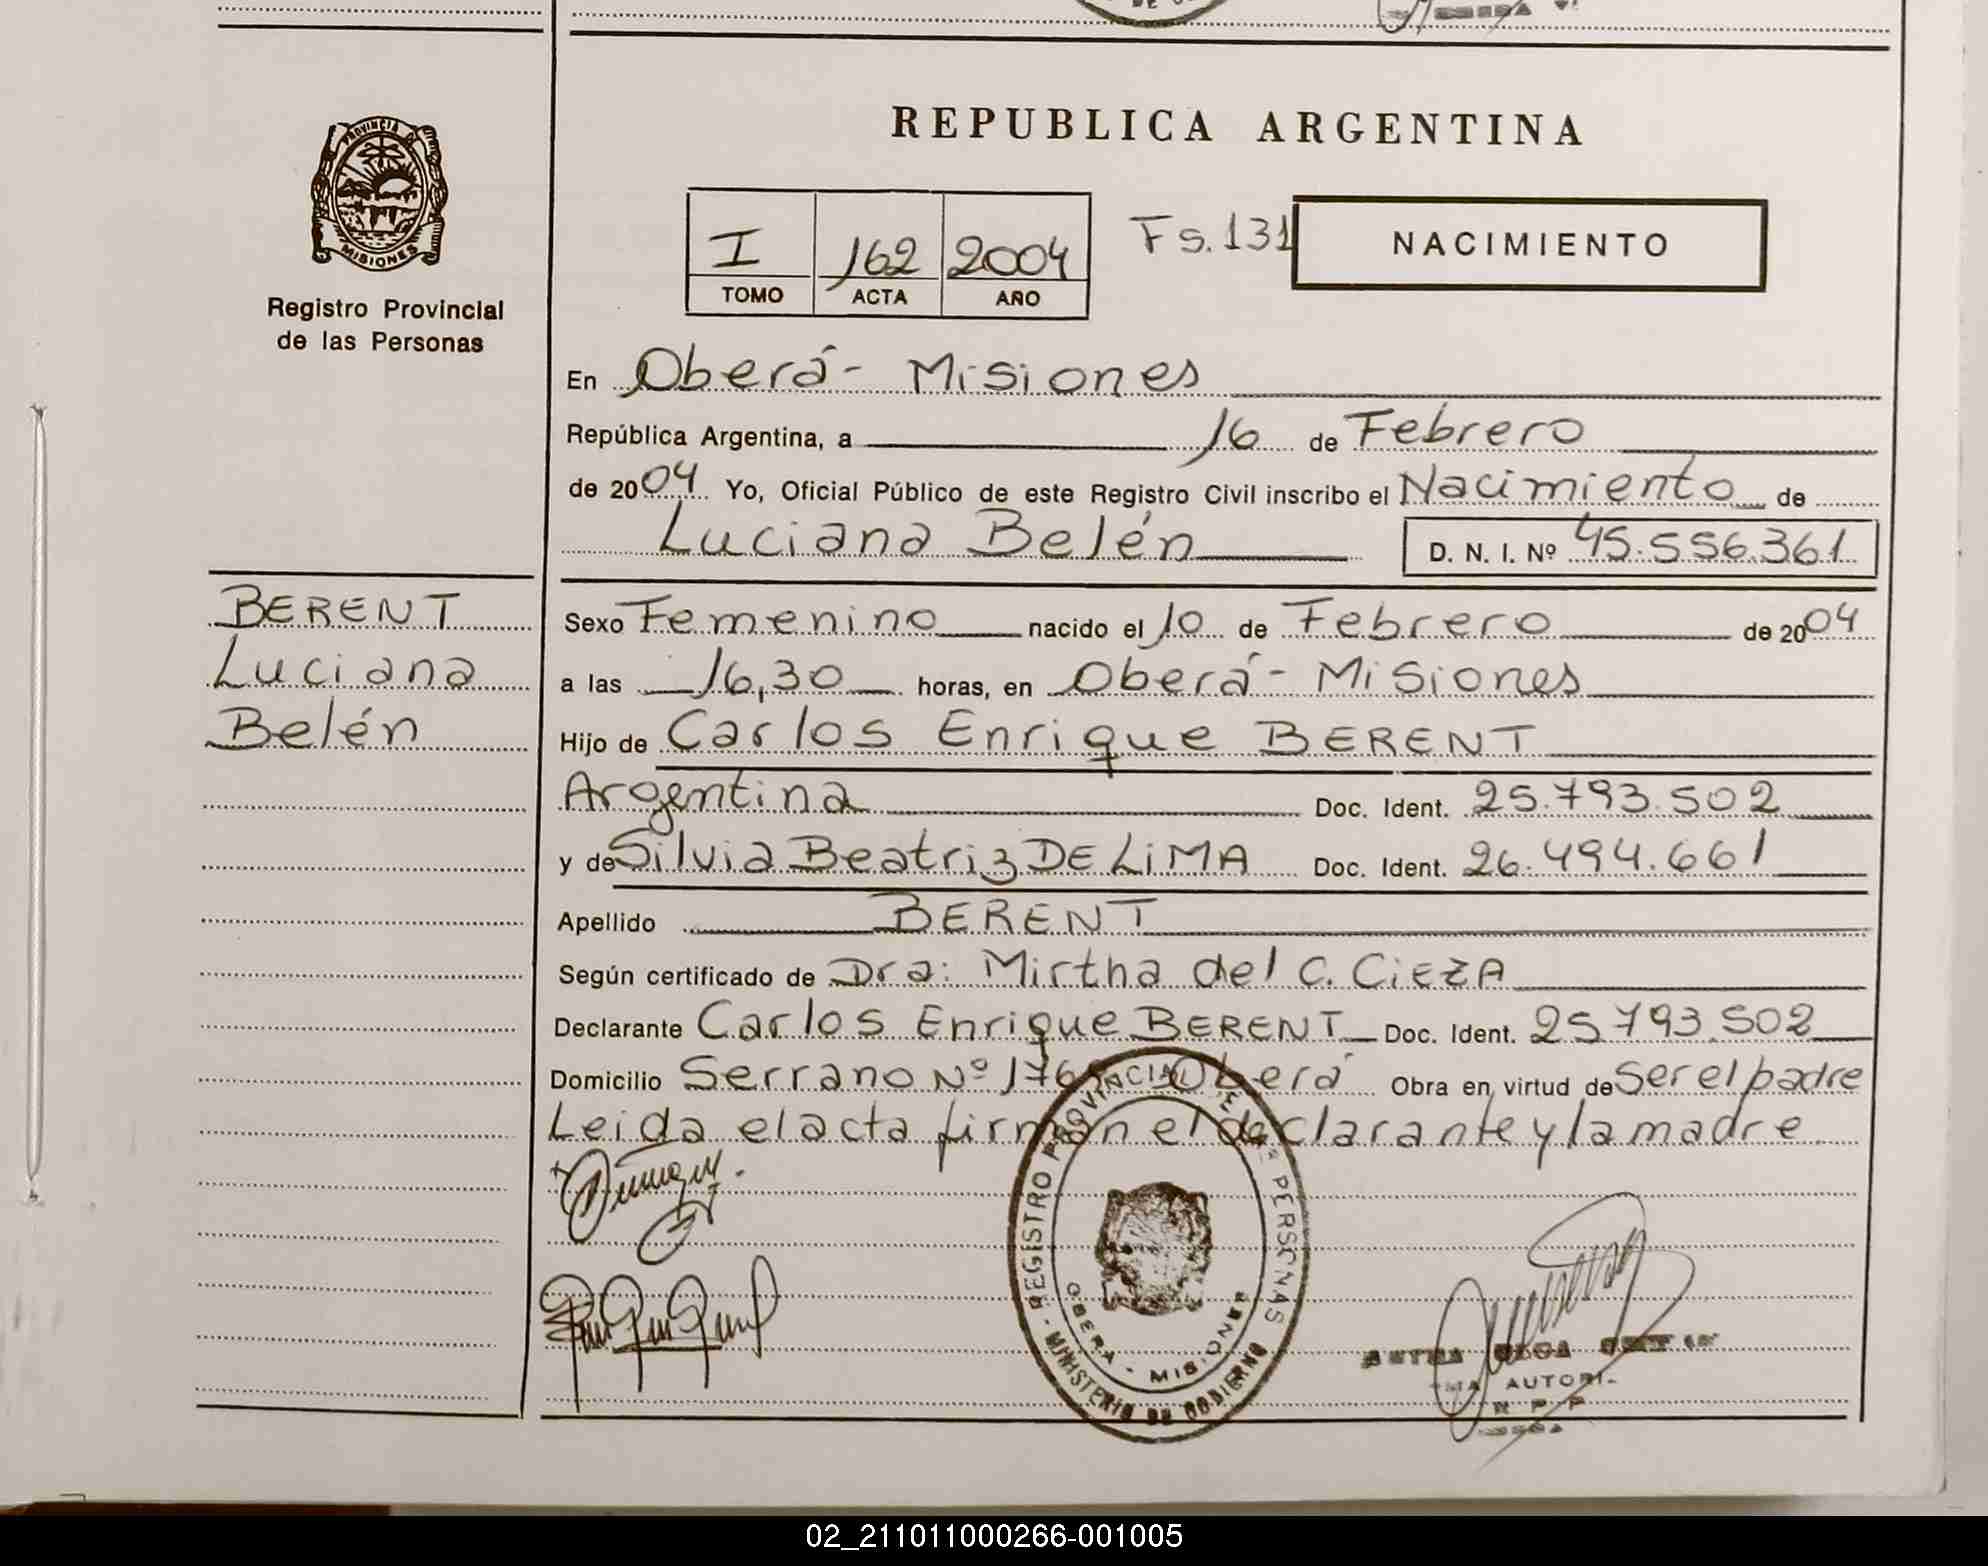 REPUBLICA ARGENTINA
PROVINCIA DE
MISIONES
Registro Provincial
de las Personas
I 162 2004
TOMO ACTA AÑO
Fs. 131
NACIMIENTO
En Oberá - Misiones
República Argentina, a 16 de Febrero
de 2004 Yo, Oficial Público de este Registro Civil inscribo el Nacimiento de
Luciana Belén D. N. I. Nº 45.556.361
BERENT
Luciana
Belén
Sexo Femenino nacido el 10 de Febrero de 2004
a las 16,30 horas, en Oberá - Misiones
Hijo de Carlos Enrique BERENT
Argentina Doc. Ident. 25.793.502
y de Silvia Beatriz DE LiMA Doc. Ident. 26.494.661
Apellido BERENT
Según certificado de Dra: Mirtha del C. CiEZA
Declarante Carlos Enrique BERENT Doc. Ident. 25 793.502
Domicilio Serrano Nº Oberá Obra en virtud de Ser el padre
Leida el acta firman el declarante y la madre
REGISTRO PROVINCIAL DE PERSONAS
OBERA - MISIONES
MINISTERIO DE GOBIERNO
AUTORI-
R P P
02_211011000266-001005